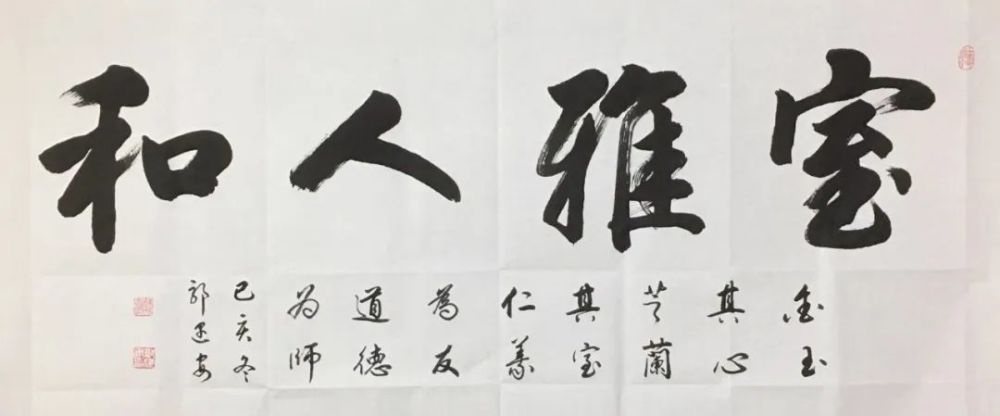 室雅人和
金玉
其心
芝蘭
其室
仁義
為友
道德
为師
己亥冬
郭